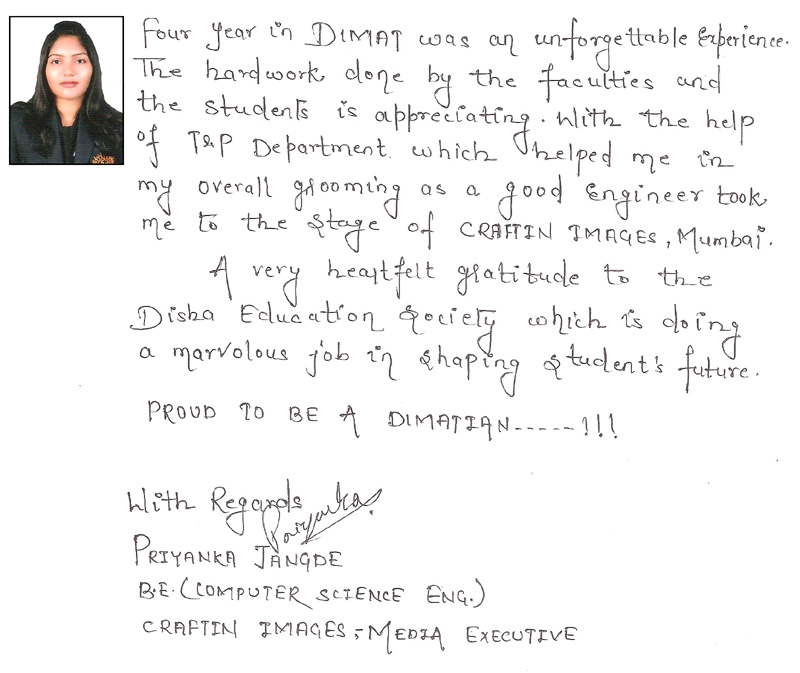 Four year in DIMAT was an unforgettable Experience.
The hardwork done by the faculties and
the students is appreciating. With the help
of T&P Department which helped me in
my overall grooming as a good Engineer took
me to the stage of CRAFTIN IMAGES, Mumbai.
A very heartfelt gratitude to the
Disha Education Society which is doing
a marvolous job in shaping student's future.
PROUD TO BE A DIMATIAN-----!!!
With Regards
Priyanka
PRIYANKA JANGDE
B.E. (COMPUTER SCIENCE ENG.)
CRAFTIN IMAGES, MEDIA EXECUTIVE